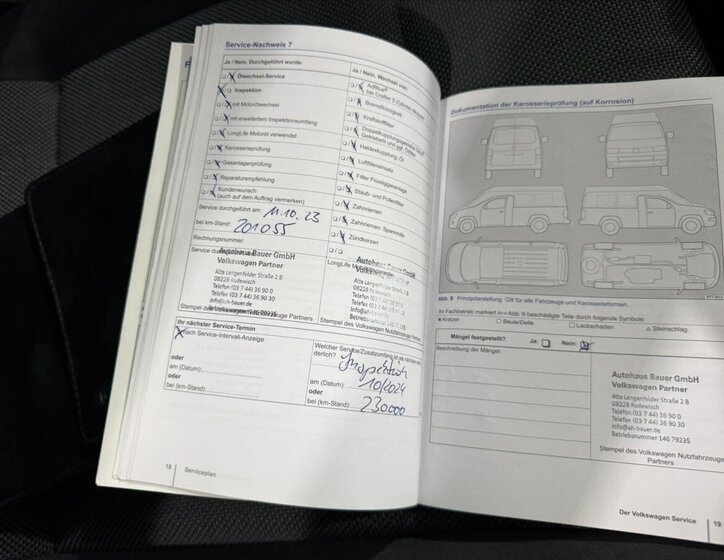 Service-Nachweis 7
Ja / Nein. Durchgeführt wurde:
Ölwechsel-Service
Inspektion
mit Motorölwechsel
mit erweitertem Inspektionsumfang
LongLife Motoröl verwendet
Karosserieprüfung
Gasanlagenprüfung
Reparaturempfehlung
Kundenwunsch
(auch auf dem Auftrag vermerken)
Service durchgeführt am: 11.10.23
bei km-Stand: 201055
Rechnungsnummer:
Autohaus Bauer GmbH
Volkswagen Partner
Alte Langenfelder Straße 2 B
08228 Rodewisch
Telefon (03 7 44) 36 90 0
Telefax (03 7 44) 36 90 30
info@ah-bauer.de
Stempel des Volkswagen Nutzfahrzeuge Partners
Ja / Nein. Wechsel von:
AdBlue®
bei Crafter 5-Zylinder Motoren
Bremsflüssigkeit
Kraftstofffilter
Haldexkupplung: Öl
Luftfiltereinsatz
Filter Flüssiggasanlage
Staub- und Pollenfilter
Zahnriemen
Zahnriemen: Spannrolle
Zündkerzen
Autohaus Bauer GmbH
Alte Langenfelder Straße 2 B
08228 Rodewisch
Telefon (03 7 44) 36 90 0
Telefax (03 7 44) 36 90 30
Info@ah-bauer.de
Stempel des Volkswagen Nutzfahrzeuge Partners
Ihr nächster Service-Termin
nach Service-Intervall-Anzeige
oder
am (Datum):
oder
bei (km-Stand):
Welcher Service/Zusatzumfang ist als nächster erforderlich?
Inspektion
am (Datum): 10/2024
oder
bei (km-Stand): 230000
18
Serviceplan
Dokumentation der Karosserieprüfung (auf Korrosion)
Abb. 9 Prinzipdarstellung. Gilt für alle Fahrzeuge und Karosserieformen.
Ihr Fachbetrieb markiert in ⇒ Abb. 9 beschädigte Teile durch folgende Symbole:
Kratzer
Beule/Delle
Lackschaden
Steinschlag
Mängel festgestellt?
Ja:
Nein:
Beschreibung der Mängel:
Autohaus Bauer GmbH
Volkswagen Partner
Alte Langenfelder Straße 2 B
08228 Rodewisch
Telefon (03 7 44) 36 90 0
Telefax (03 7 44) 36 90 30
info@ah-bauer.de
Betriebsnummer 146 79235
Stempel des Volkswagen Nutzfahrzeuge
Partners
Der Volkswagen Service
19